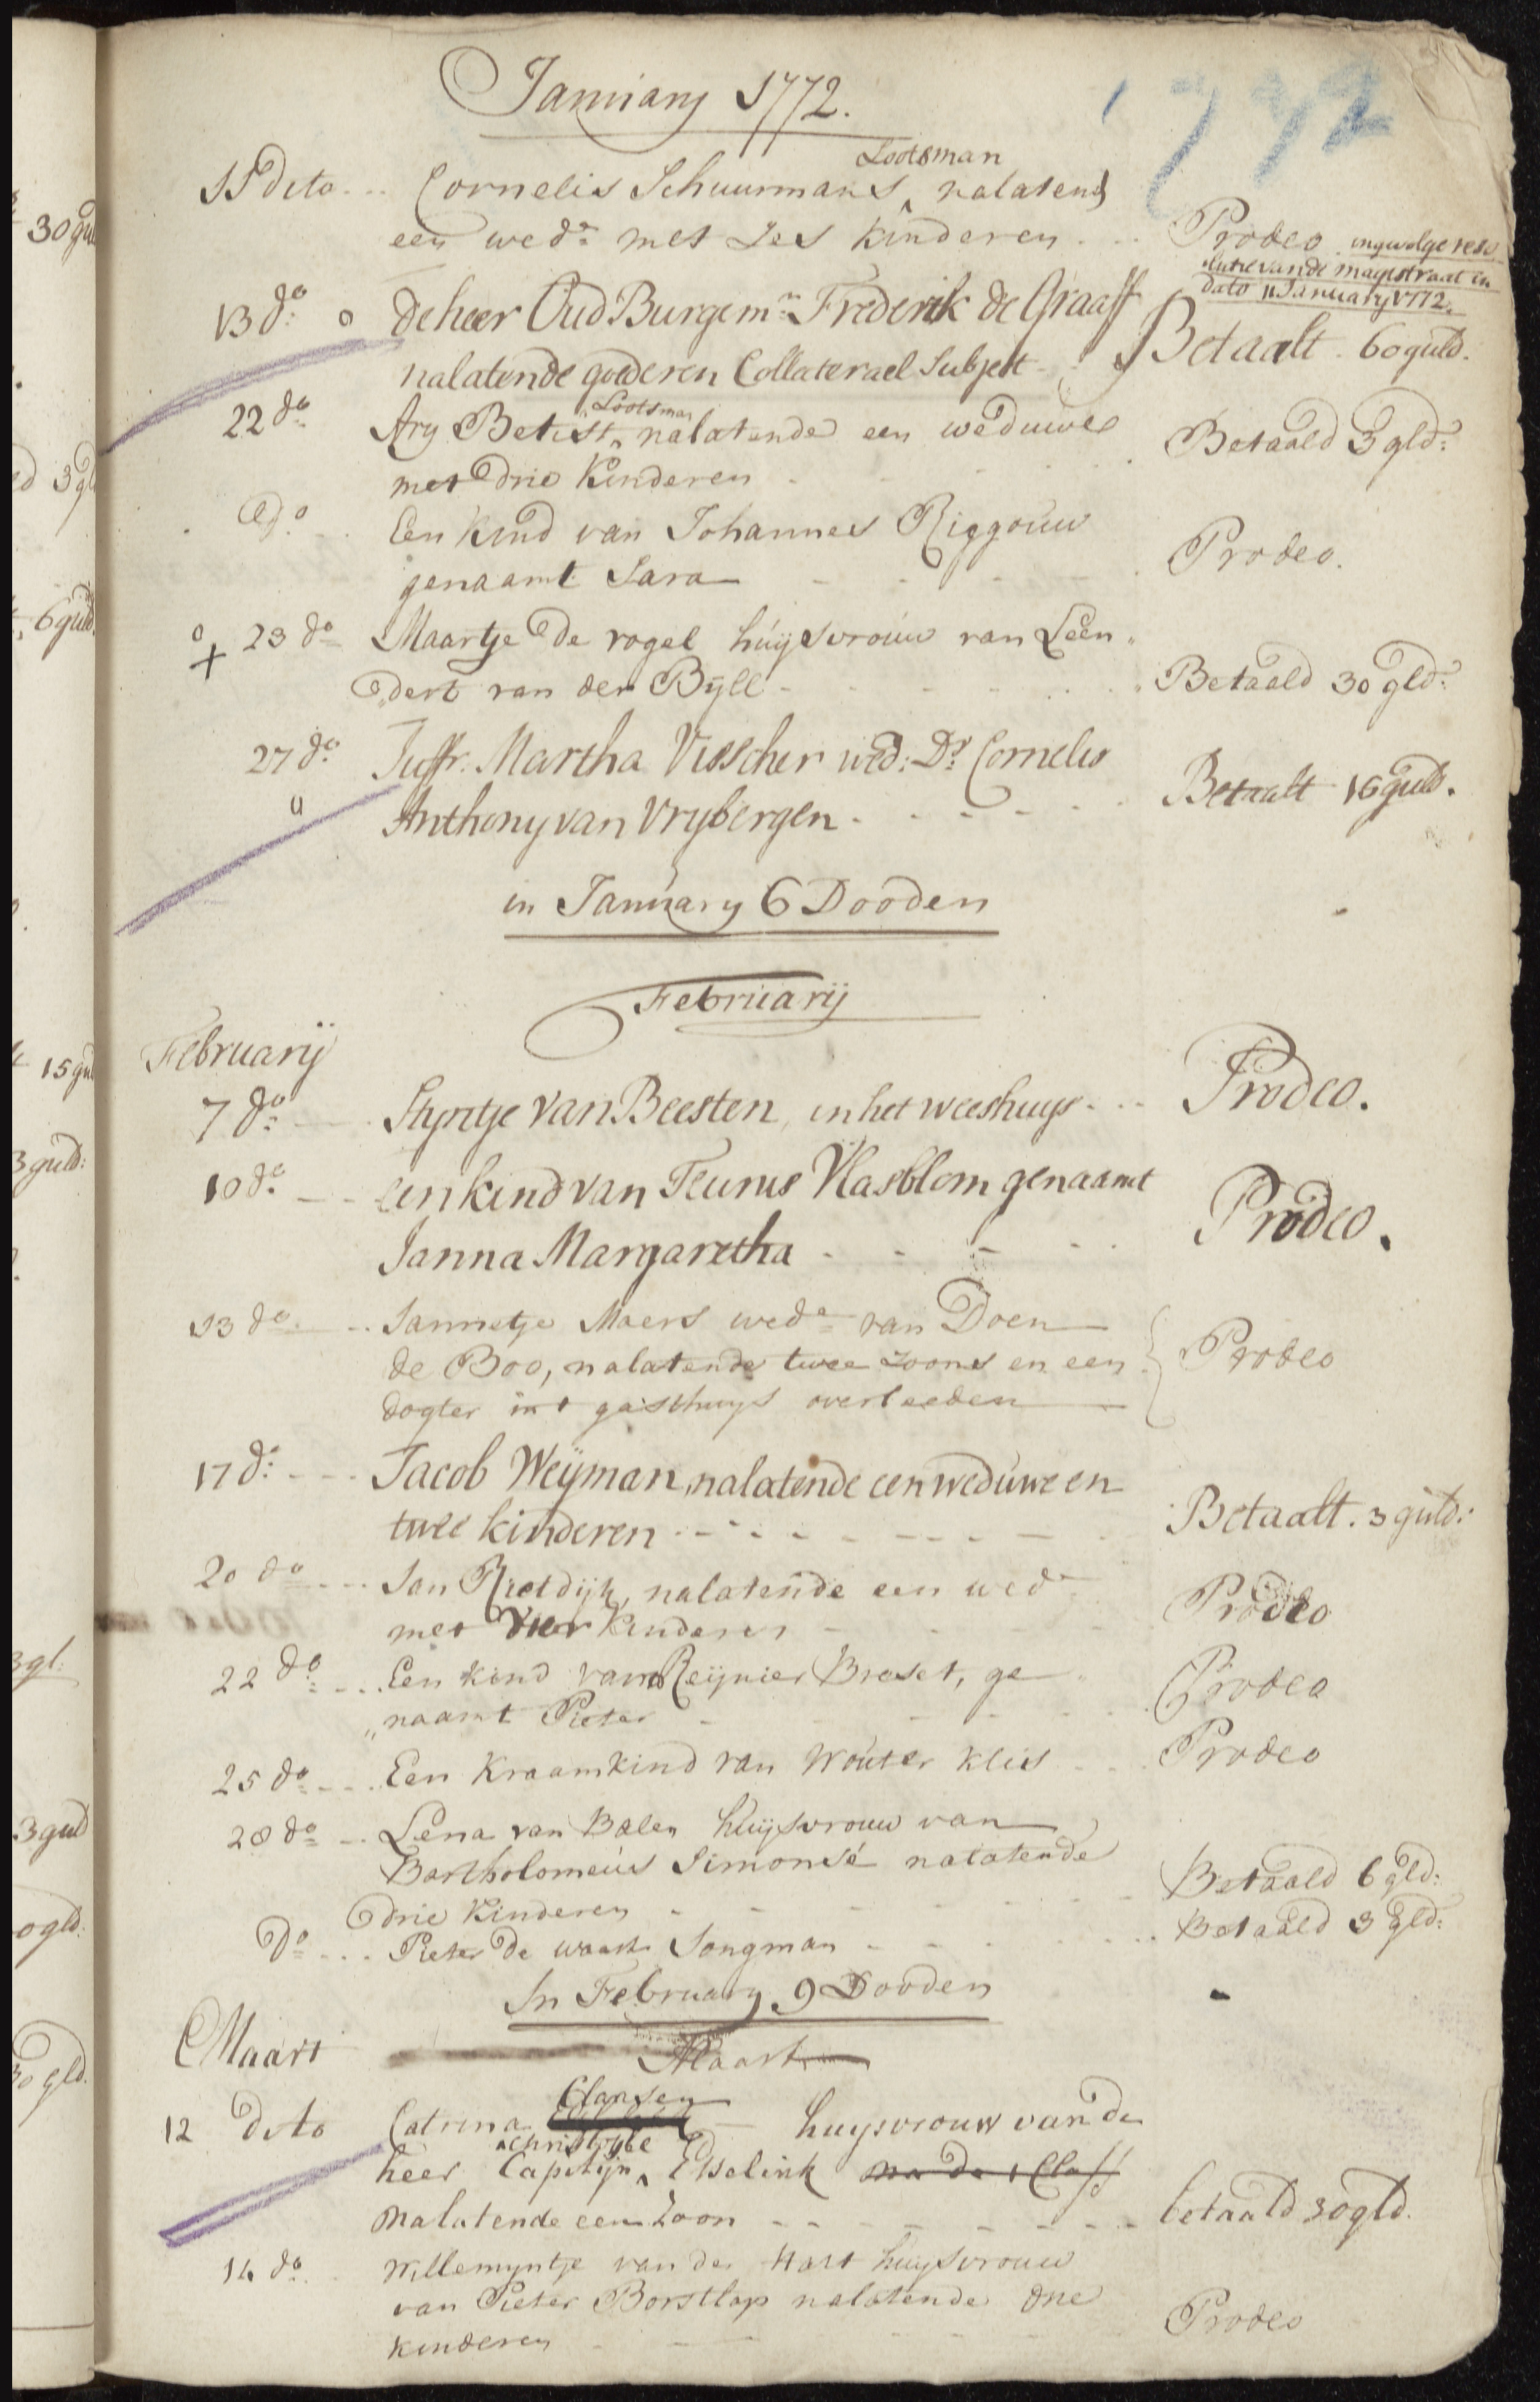 January 1772.
1772
Lootsman
11 dito Cornelis Schuurmans, nalatend
een wed:e met Ses kinderen Prodeo ingevolge reso
lutie van de magistraat in
dato 11 January 1772.
13 do: o de heer Oud Burgemr. Frederik de Graaff
nalatende goederen Collaterael Subject Betaalt 60 guld.
Lootsman
22 do Ary Betist, nalatende een weduwe Betaald 3 gld:
met drie Kinderen
do Een Kind van Johannes Riggouw
genaamt Sara Prodeo.
o + 23 do Maartje de vogel huijsvrouw van Leen
dert van der Bijll Betaald 30 gld:
27 do Juffr. Martha Visscher wed: Ds: Cornelis
Anthony van Vrybergen Betaalt 16 guld.
in January 6 Dooden
Februarij
Februarij
7 do: Styntje van Beesten, in het weeshuys Prodeo.
10 do: een kind van Teunis Vlasblom genaamt
Janna Margaretha Prodeo.
13 do Jannetje Maers wed:e van Doen
de Boo, nalatende twee zoons en een Prodeo
dogter int gasthuys overleeden
17 do: Jacob Weijman, nalatende een weduwe en
twee kinderen Betaalt. 3 guld:
20 do Jan Rietdijk, nalatende een wed:e
met vier kinderen Prodeo
22 do Een kind van Reijnier Braset, ge
naamt Pieter Prodeo
25 do Een Kraamkind van Wouter Klis Prodeo
28 do Lena van Balen huijsvrouw van
Bartholomeus Simonsé nalatende
drie Kinderen Betaald 6 gld:
Do Pieter de Jongman Betaald 3 gld:
In February 9 Dooden
Maart Maart
Clansen
12 dito Catrina huysvrouw van de
Christoffe
heer Capitijn Esselink
nalatende een Zoon betaald 30 gld.
14 do Willemyntje van der Hart huysvrouw
van Pieter Borstlap nalatende drie
kinderen Prodeo
30 gul
3 gl
6 guld.
15 gul
3 guld:
3 gl.
3 guld
0 gld.
30 gld.